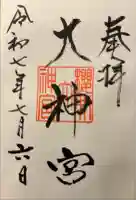 奉拝
大神宮
令和七年七月六日